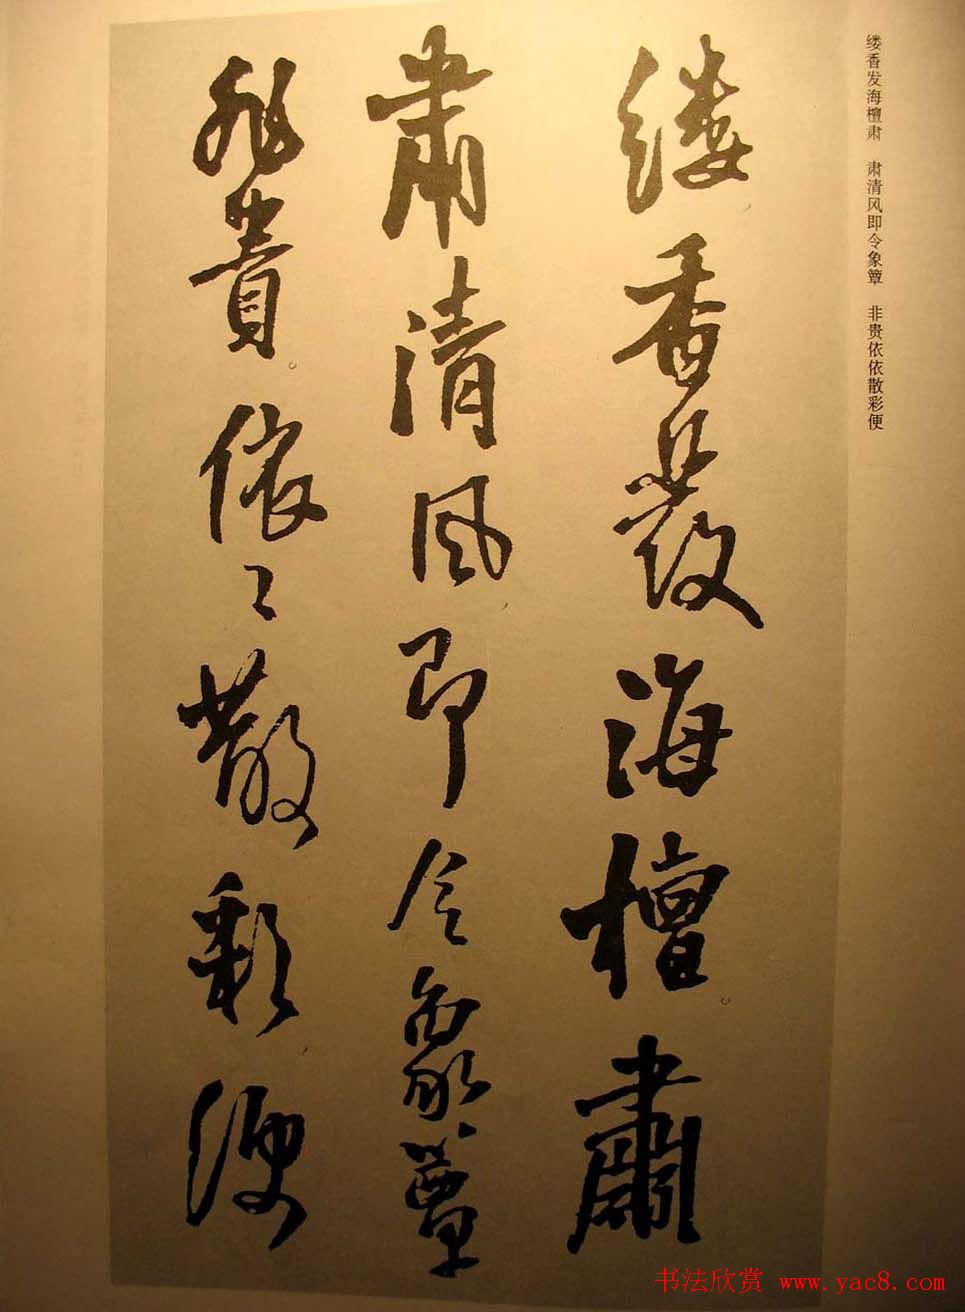 缕香发海檀肃 肃清风即令象簟 非贵依依散彩便
缕香發海檀肅
肅清風即令象簟
非貴依〻散彩便
书法欣赏 www.yac8.com